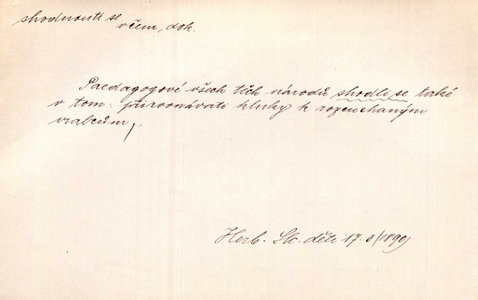 shodnouti se
v čem, dok.
Paedagogové všech těch národů shodli se také
v tom: přirovnávati kluky k rozcuchaným
vrabcům,
Herb. Sk. děti 17. 8/1890)